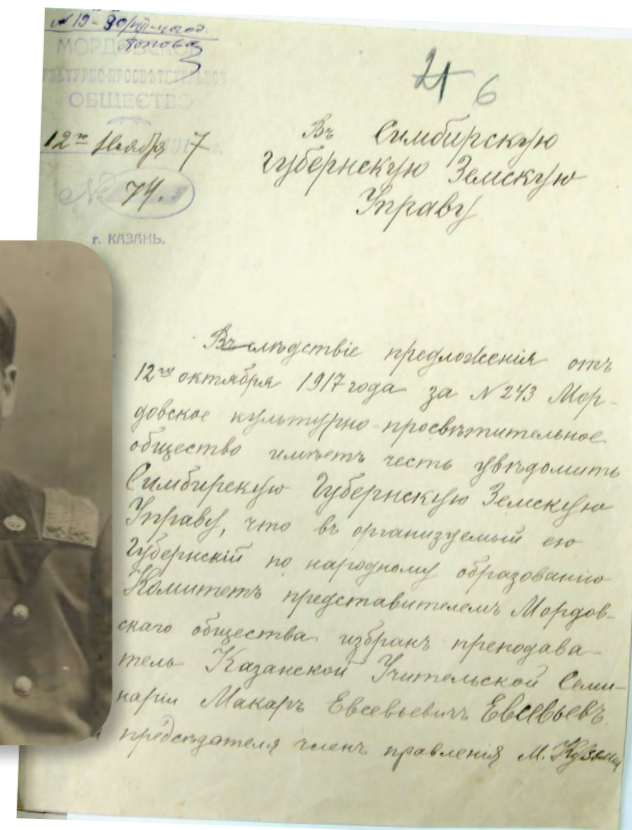 МОРДОВСКОЕ
КУЛЬТУРНО-ПРОСВѢТИТЕЛЬНОЕ
ОБЩЕСТВО
12го Ноября 1917 г.
№ 74.
г. КАЗАНЬ.
6
Въ Симбирскую
Губернскую Земскую
Управу
Вслѣдствіе предложенія отъ
12го октября 1917 года за N 243 Мор-
довское культурно-просвѣтительное
общество имѣетъ честь увѣдомить
Симбирскую Губернскую Земскую
Управу, что въ организуемый ею
Губернскій по народному образованію
Комитетъ представителемъ Мордов-
скаго общества избранъ преподава-
тель Казанской Учительской Семи-
наріи Макаръ Евсевьевичъ Евсевьевъ
предсѣдателя членъ правленія М.